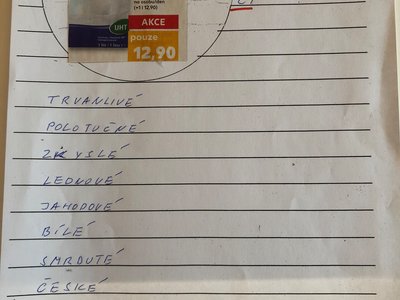 na osobu/den
(=1 l 12,90)
UHT
AKCE
pouze
12,90
TRVANLIVÉ
POLOTUČNÉ
ZKYSLÉ
LEDNOVÉ
JAHODOVÉ
BÍLÉ
SMRDUTÉ
ČESKÉ